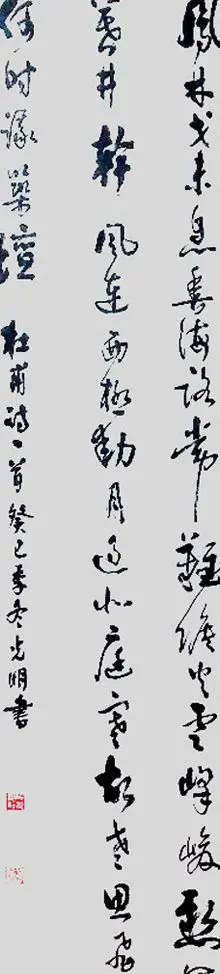 鳳林戈未息魚海路常難候火雲峰峻懸
幕井幹風連西極動月過北庭寒故老思飛
何時議築壇
杜甫詩一首癸巳季冬光明書